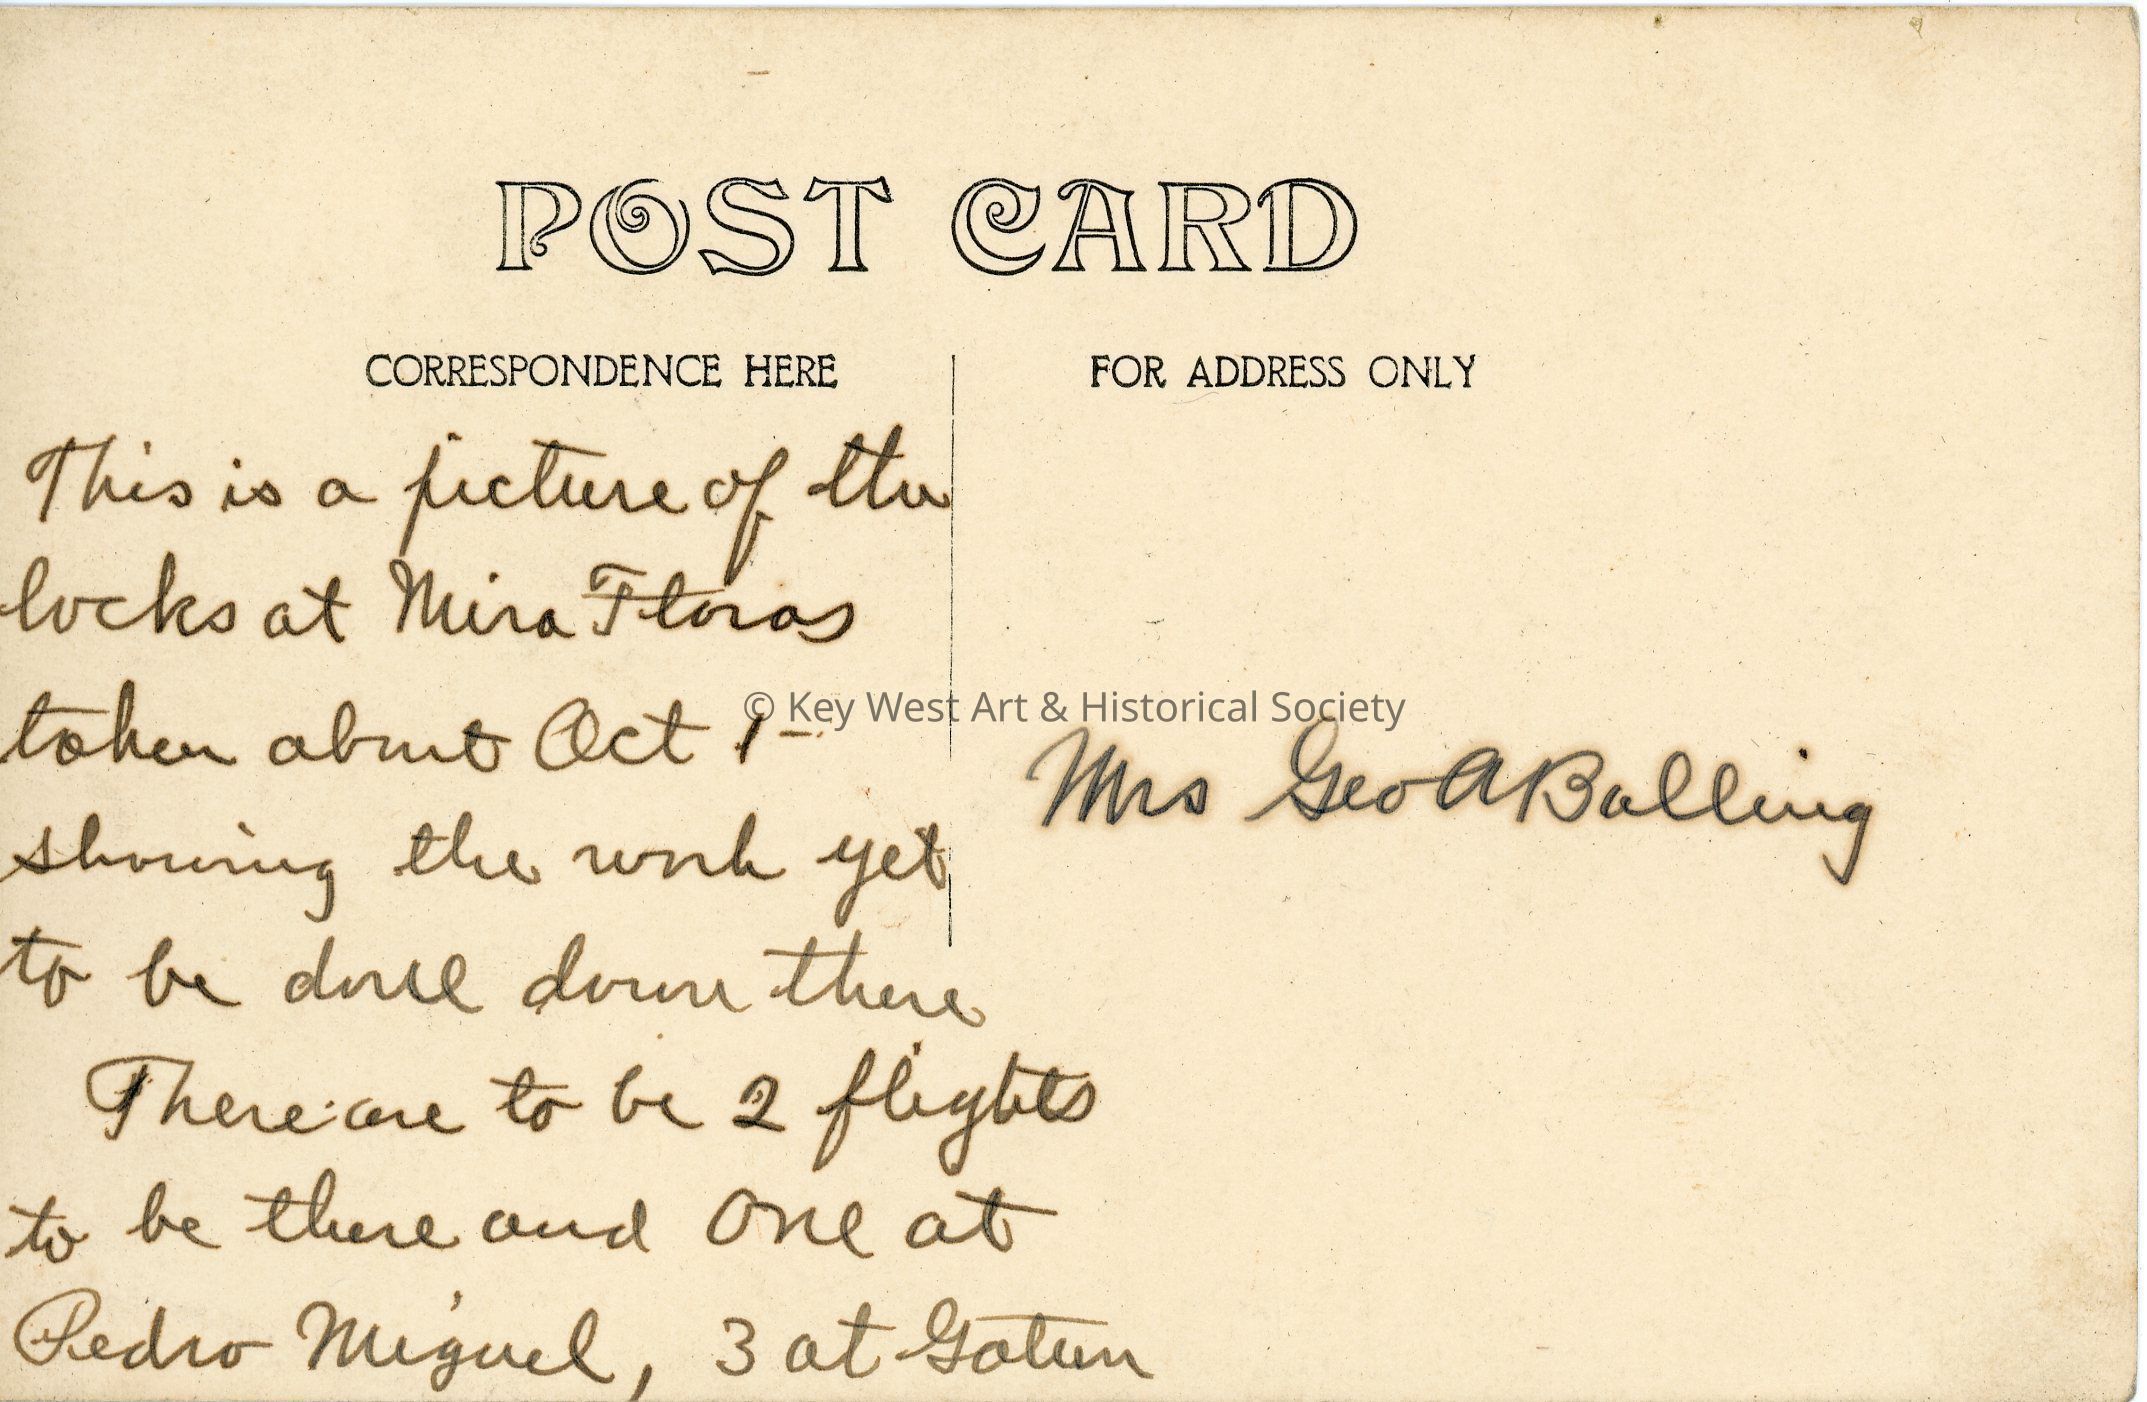 POST CARD
CORRESPONDENCE HERE
FOR ADDRESS ONLY
This is a picture of the
locks at Mira Floras
taken about Oct 1-
showing the work yet
to be done down there
There are to be 2 flights
to be there and one at
Pedro Miguel, 3 at Gatun
Mrs Geo A Balling
© Key West Art & Historical Society